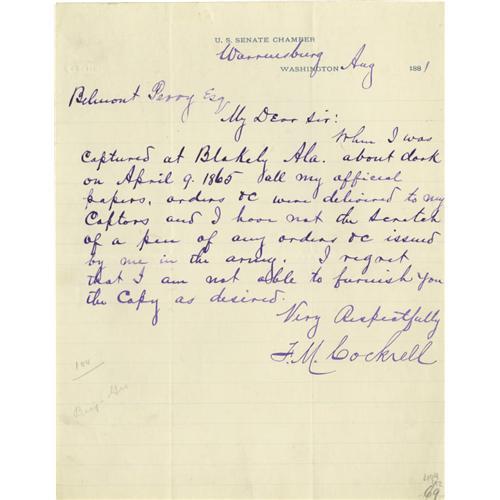 U. S. SENATE CHAMBER
Warrensburg
WASHINGTON Aug 1881
Belmont Perry Esq
My Dear Sir:
When I was
captured at Blakely Ala. about dark
on April 9. 1865 all my official
papers, orders &c were delivered to my
Captors and I have not the scratch
of a pen of any orders &c issued
by me in the army. I regret
that I am not able to furnish you
the Copy as desired.
Very Respectfully
F. M. Cockrell
Brig. Gen
69